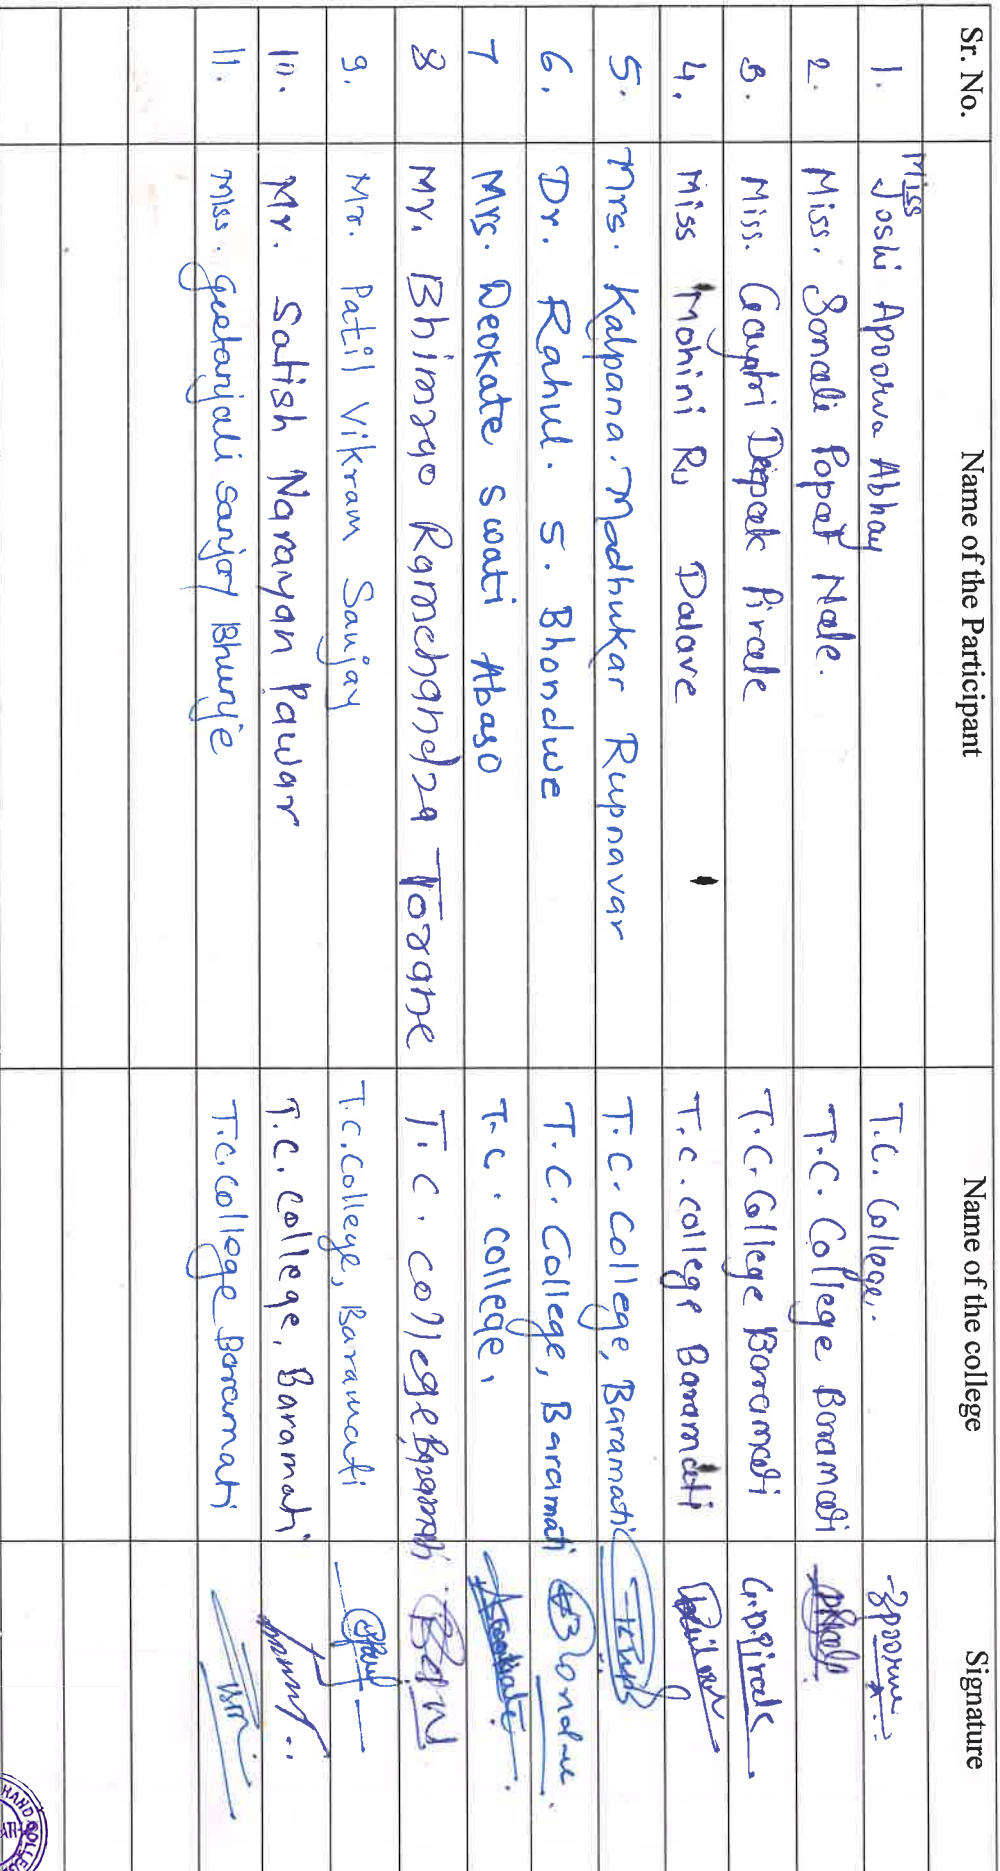 Sr. No. Name of the Participant Name of the college Signature
1. Miss Joshi Apoorva Abhay T.C. College. Apoorva
2. Miss. Sonali Popat Nale. T.C. College Baramati
3. Miss. Gayatri Deepak Pirale T.C. College Baramati G.D.Pirale
4. Miss Mohini R. Dalave T.C. college Baramati
5. Mrs. Kalpana. Madhukar Rupnavar T.C. College, Baramati
6. Dr. Rahul. S. Bhondwe T.C. College, Baramati
7 Mrs. Deokate Swati Abaso T.C. College,
8 Mr. Bhimrao Ramchandra Torane T.C. College Baramati
9. Mr. Patil Vikram Sanjay T.C. College, Baramati
10. Mr. Satish Narayan Pawar T.C. College, Baramati
11. Miss. Geetanjali Sanjay Bhunje T.C. College Baramati